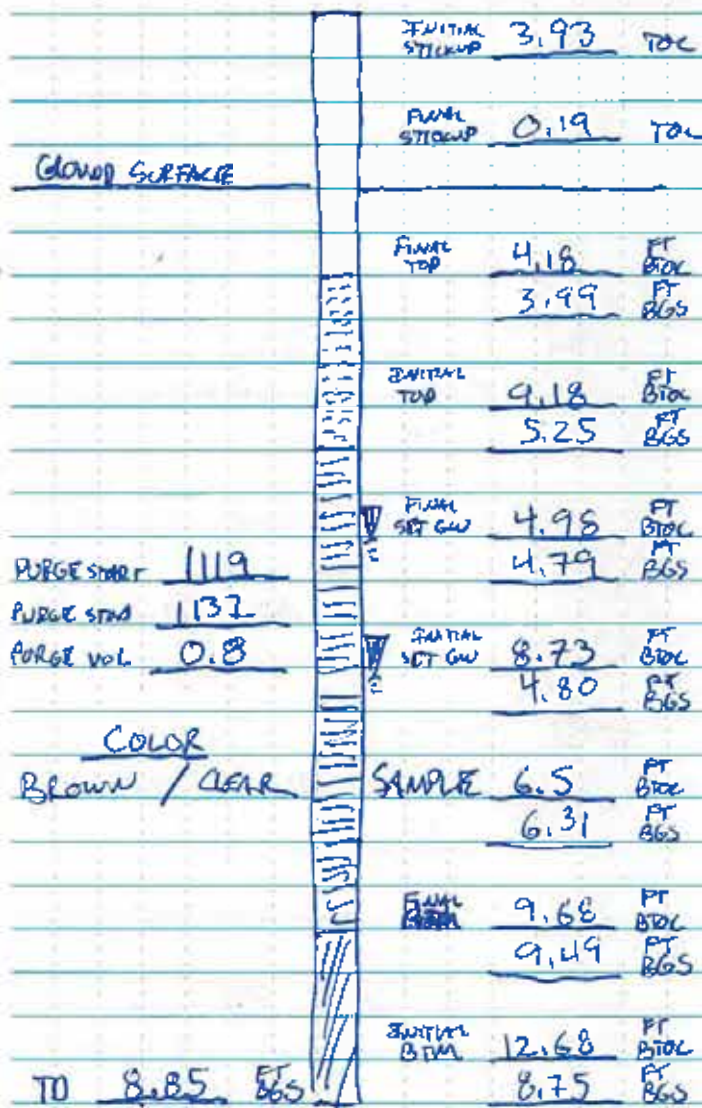 INITIAL STICKUP 3.93 TOC
FINAL STICKUP 0.19 TOC
GROUND SURFACE
FINAL TOP 4.18 FT BTOC
3.99 FT BGS
INITIAL TOP 9.18 FT BTOC
5.25 FT BGS
FINAL SET GW 4.98 FT BTOC
4.79 FT BGS
PURGE START 1119
PURGE STOP 1132
PURGE VOL 0.8
INITIAL SET GW 8.73 FT BTOC
4.80 FT BGS
COLOR
BROWN / CLEAR
SAMPLE 6.5 FT BTOC
6.31 FT BGS
FINAL BTM 9.68 FT BTOC
9.49 FT BGS
INITIAL BTM 12.68 FT BTOC
8.75 FT BGS
TD 8.85 FT BGS